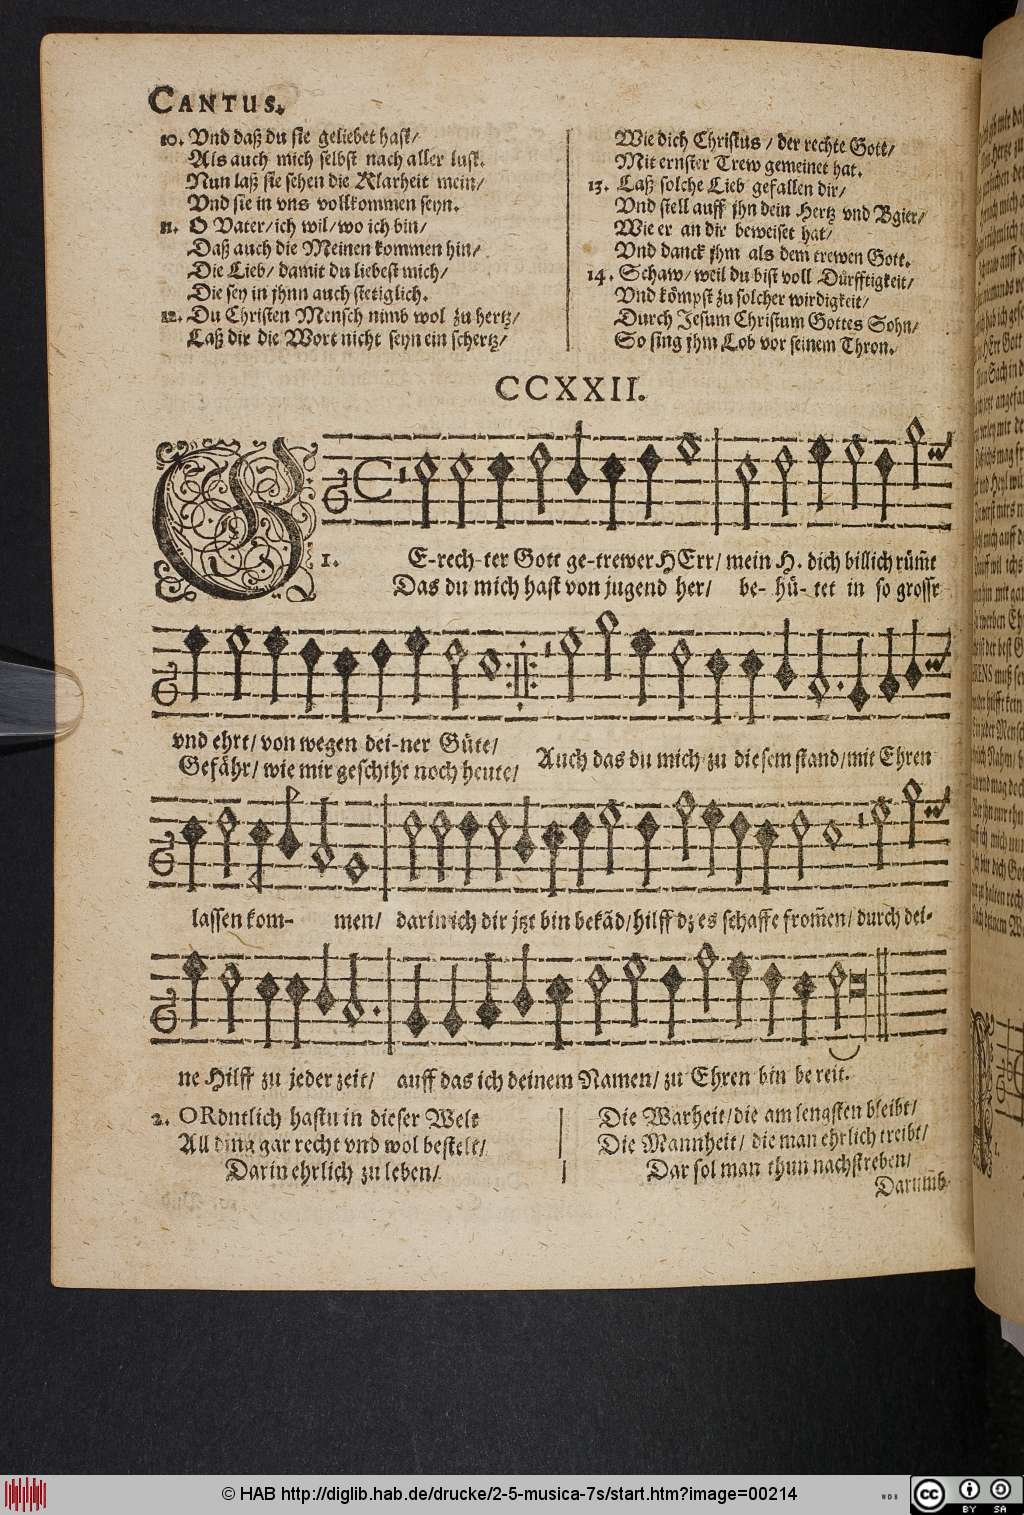 CANTUS.
10. Vnd daß du sie geliebet hast/
Als auch mich selbst nach aller lust.
Nun laß sie sehen die Klarheit mein/
Vnd sie in vns vollkommen seyn.
11. O Vater/ich wil/wo ich bin/
Daß auch die Meinen kommen hin/
Die Lieb/ damit du liebest mich/
Die sey in jhnn auch stetiglich.
12. Du Christen Mensch nimb wol zu hertz/
Laß dir die Wort nicht seyn ein schertz/
Wie dich Christus / der rechte Gott/
Mit ernster Trew gemeinet hat.
13. Laß solche Lieb gefallen dir/
Vnd stell auff jhn dein Hertz vnd Bgier/
Wie er an dir beweiset hat/
Vnd danck jhm als dem trewen Gott.
14. Schaw/ weil du bist voll Dürfftigkeit/
Vnd kömpst zu solcher wirdigkeit/
Durch Jesum Christum Gottes Sohn/
So sing jhm Lob vor seinem Thron.
CCXXII.
1. GE-rech-ter Gott ge-trewer HErr/ mein H. dich billich rüm̃t
Das du mich hast von jugend her/ be- hü- tet in so grosser
vnd ehrt/ von wegen dei-ner Güte/
Gefähr/ wie mir geschiht noch heute/
Auch das du mich zu diesem stand/mit Ehren
lassen kom- men/ darin ich dir jtzt bin bekãd/hilff dz es schaffe from̃en/ durch dei-
ne Hilff zu jeder zeit/ auff das ich deinem Namen/ zu Ehren bin bereit.
2. ORdntlich hastu in dieser Welt
All ding gar recht vnd wol bestelt/
Darin ehrlich zu leben/
Die Warheit/die am lengsten bleibt/
Die Mannheit/ die man ehrlich treibt/
Dar sol man thun nachstreben/
Darumb
© HAB http://diglib.hab.de/drucke/2-5-musica-7s/start.htm?image=00214
WDB
cc
BY SA